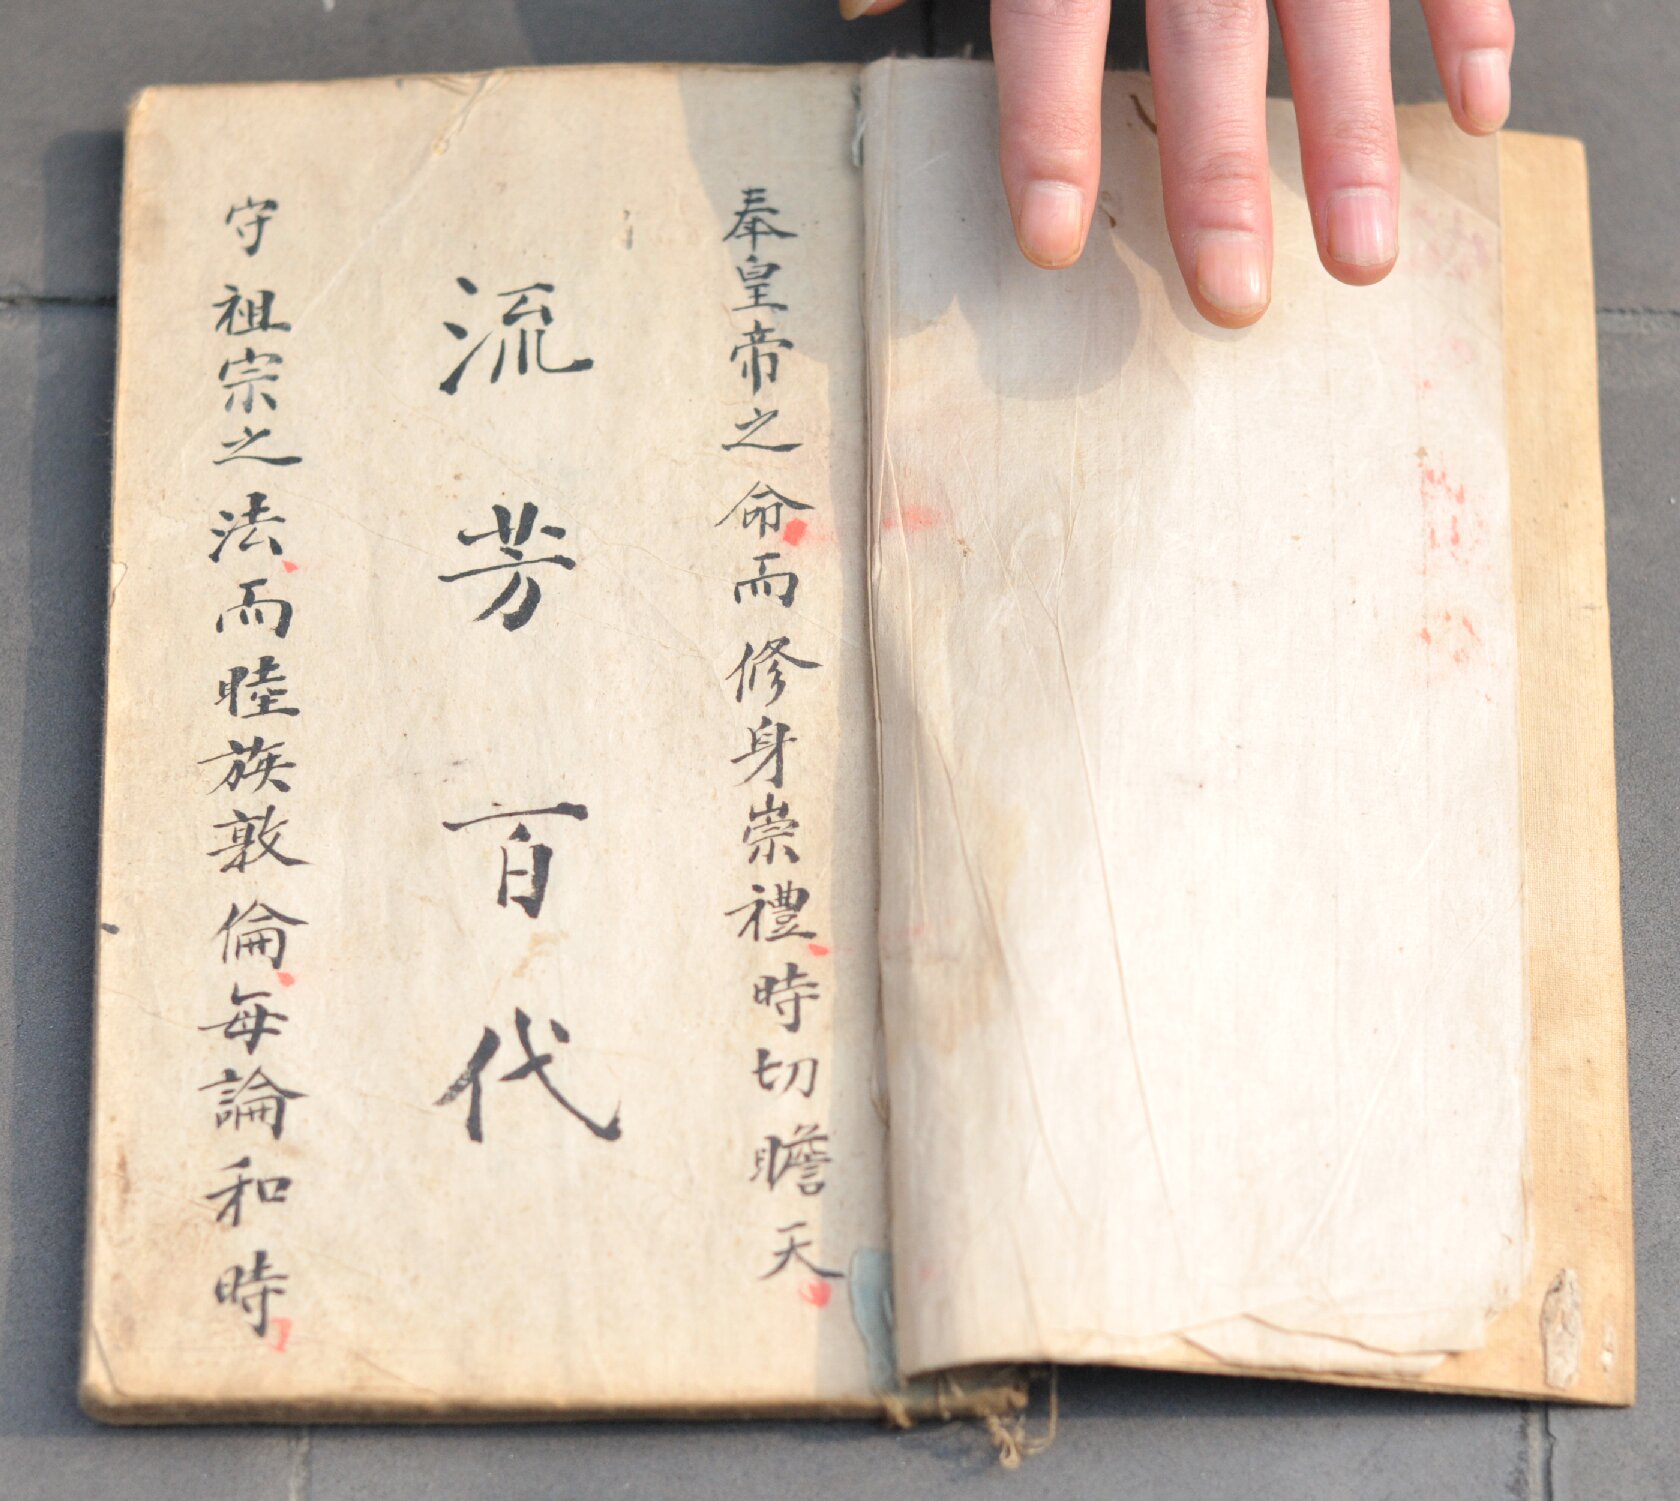 奉皇帝之命而修身崇禮時切瞻天
流芳百代
守祖宗之法而睦族敦倫每論和時